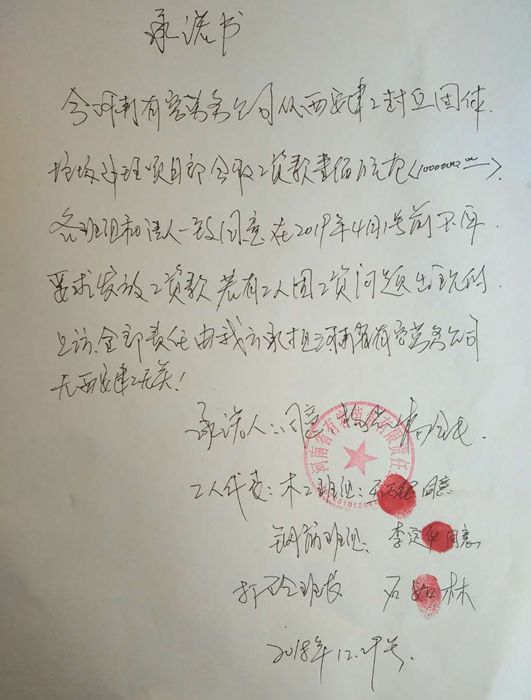 承诺书
今河南有容劳务公司从西安建工封丘固体
垃圾处理项目部领取工资款壹佰万元
各班组和法人一致同意在2019年4月1号前不再
要求发放工资款 若有工人因工资问题出现的
上访.全部责任由我方承担河南省有容劳务公司
与西安建工无关！
承诺人：同意
河南省有 有限责任
工人代表：木工班组： 同意
钢筋班组： 李 同意
打砼班 石如林
2018年12.29号.